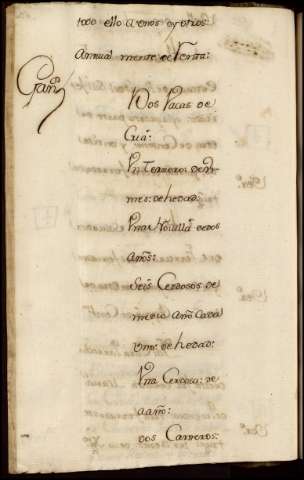 todo ello a unos y otros:
Annual mente de Renta:
Gan.º
Dos Vacas de
Cria:
Un Ternero: de
mes: de hedad:
Una Novilla de dos
años:
Seis Cerdosos de
medio año Cada
Uno: de hedad:
Una Cerdosa: de
a año:
dos Carneros: